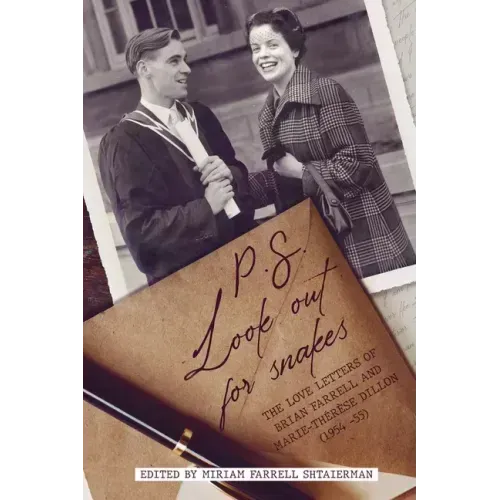 P.S.
Look out
for snakes
THE LOVE LETTERS OF
BRIAN FARRELL AND
MARIE-THÉRÈSE DILLON
(1954 -55)
EDITED BY MIRIAM FARRELL SHTAIERMAN